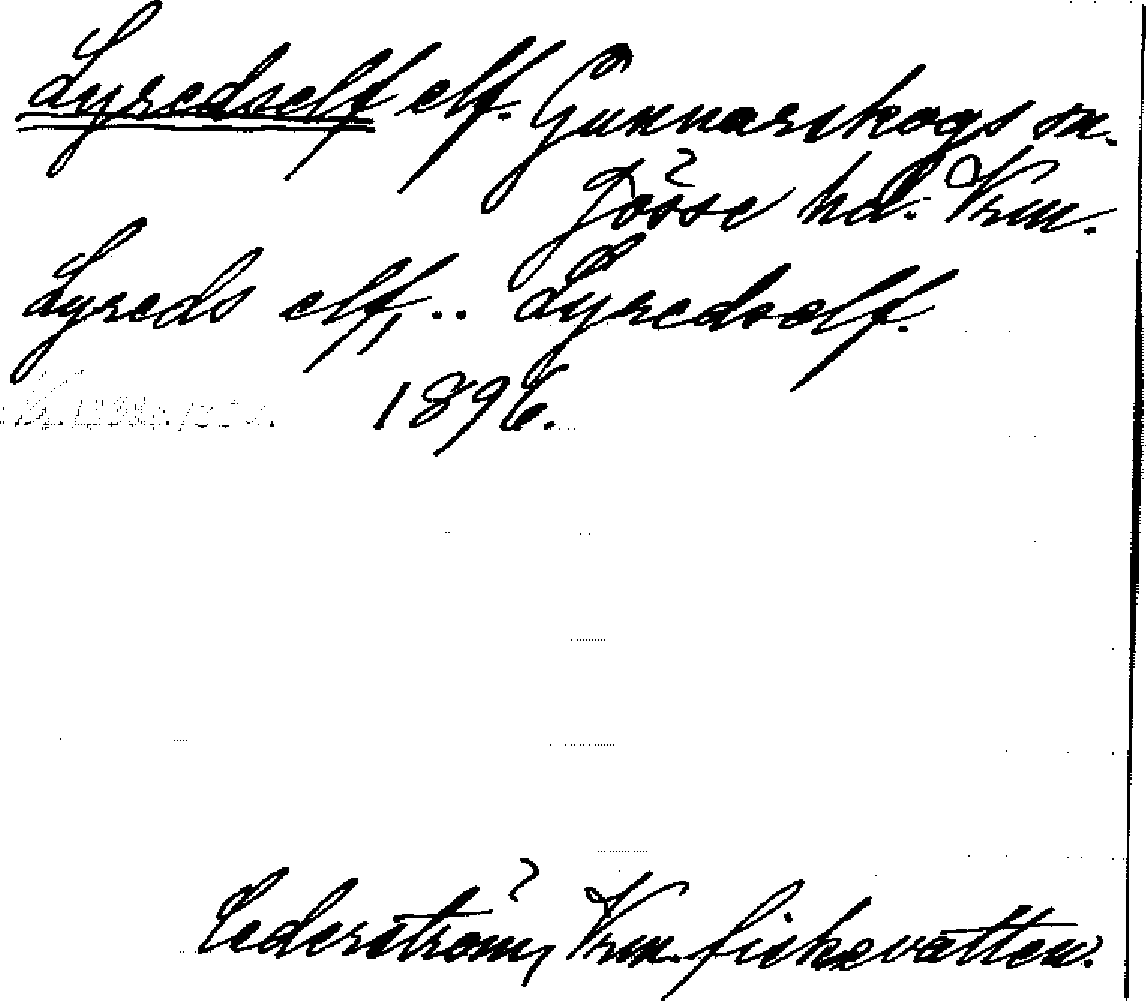 Lyredself elf. Gunnarskogs sn.
Jösse hd. Vrm.
Lyreds elf, .. Lyredself.
1896.
Cederström, Vrm. fiskevatten.